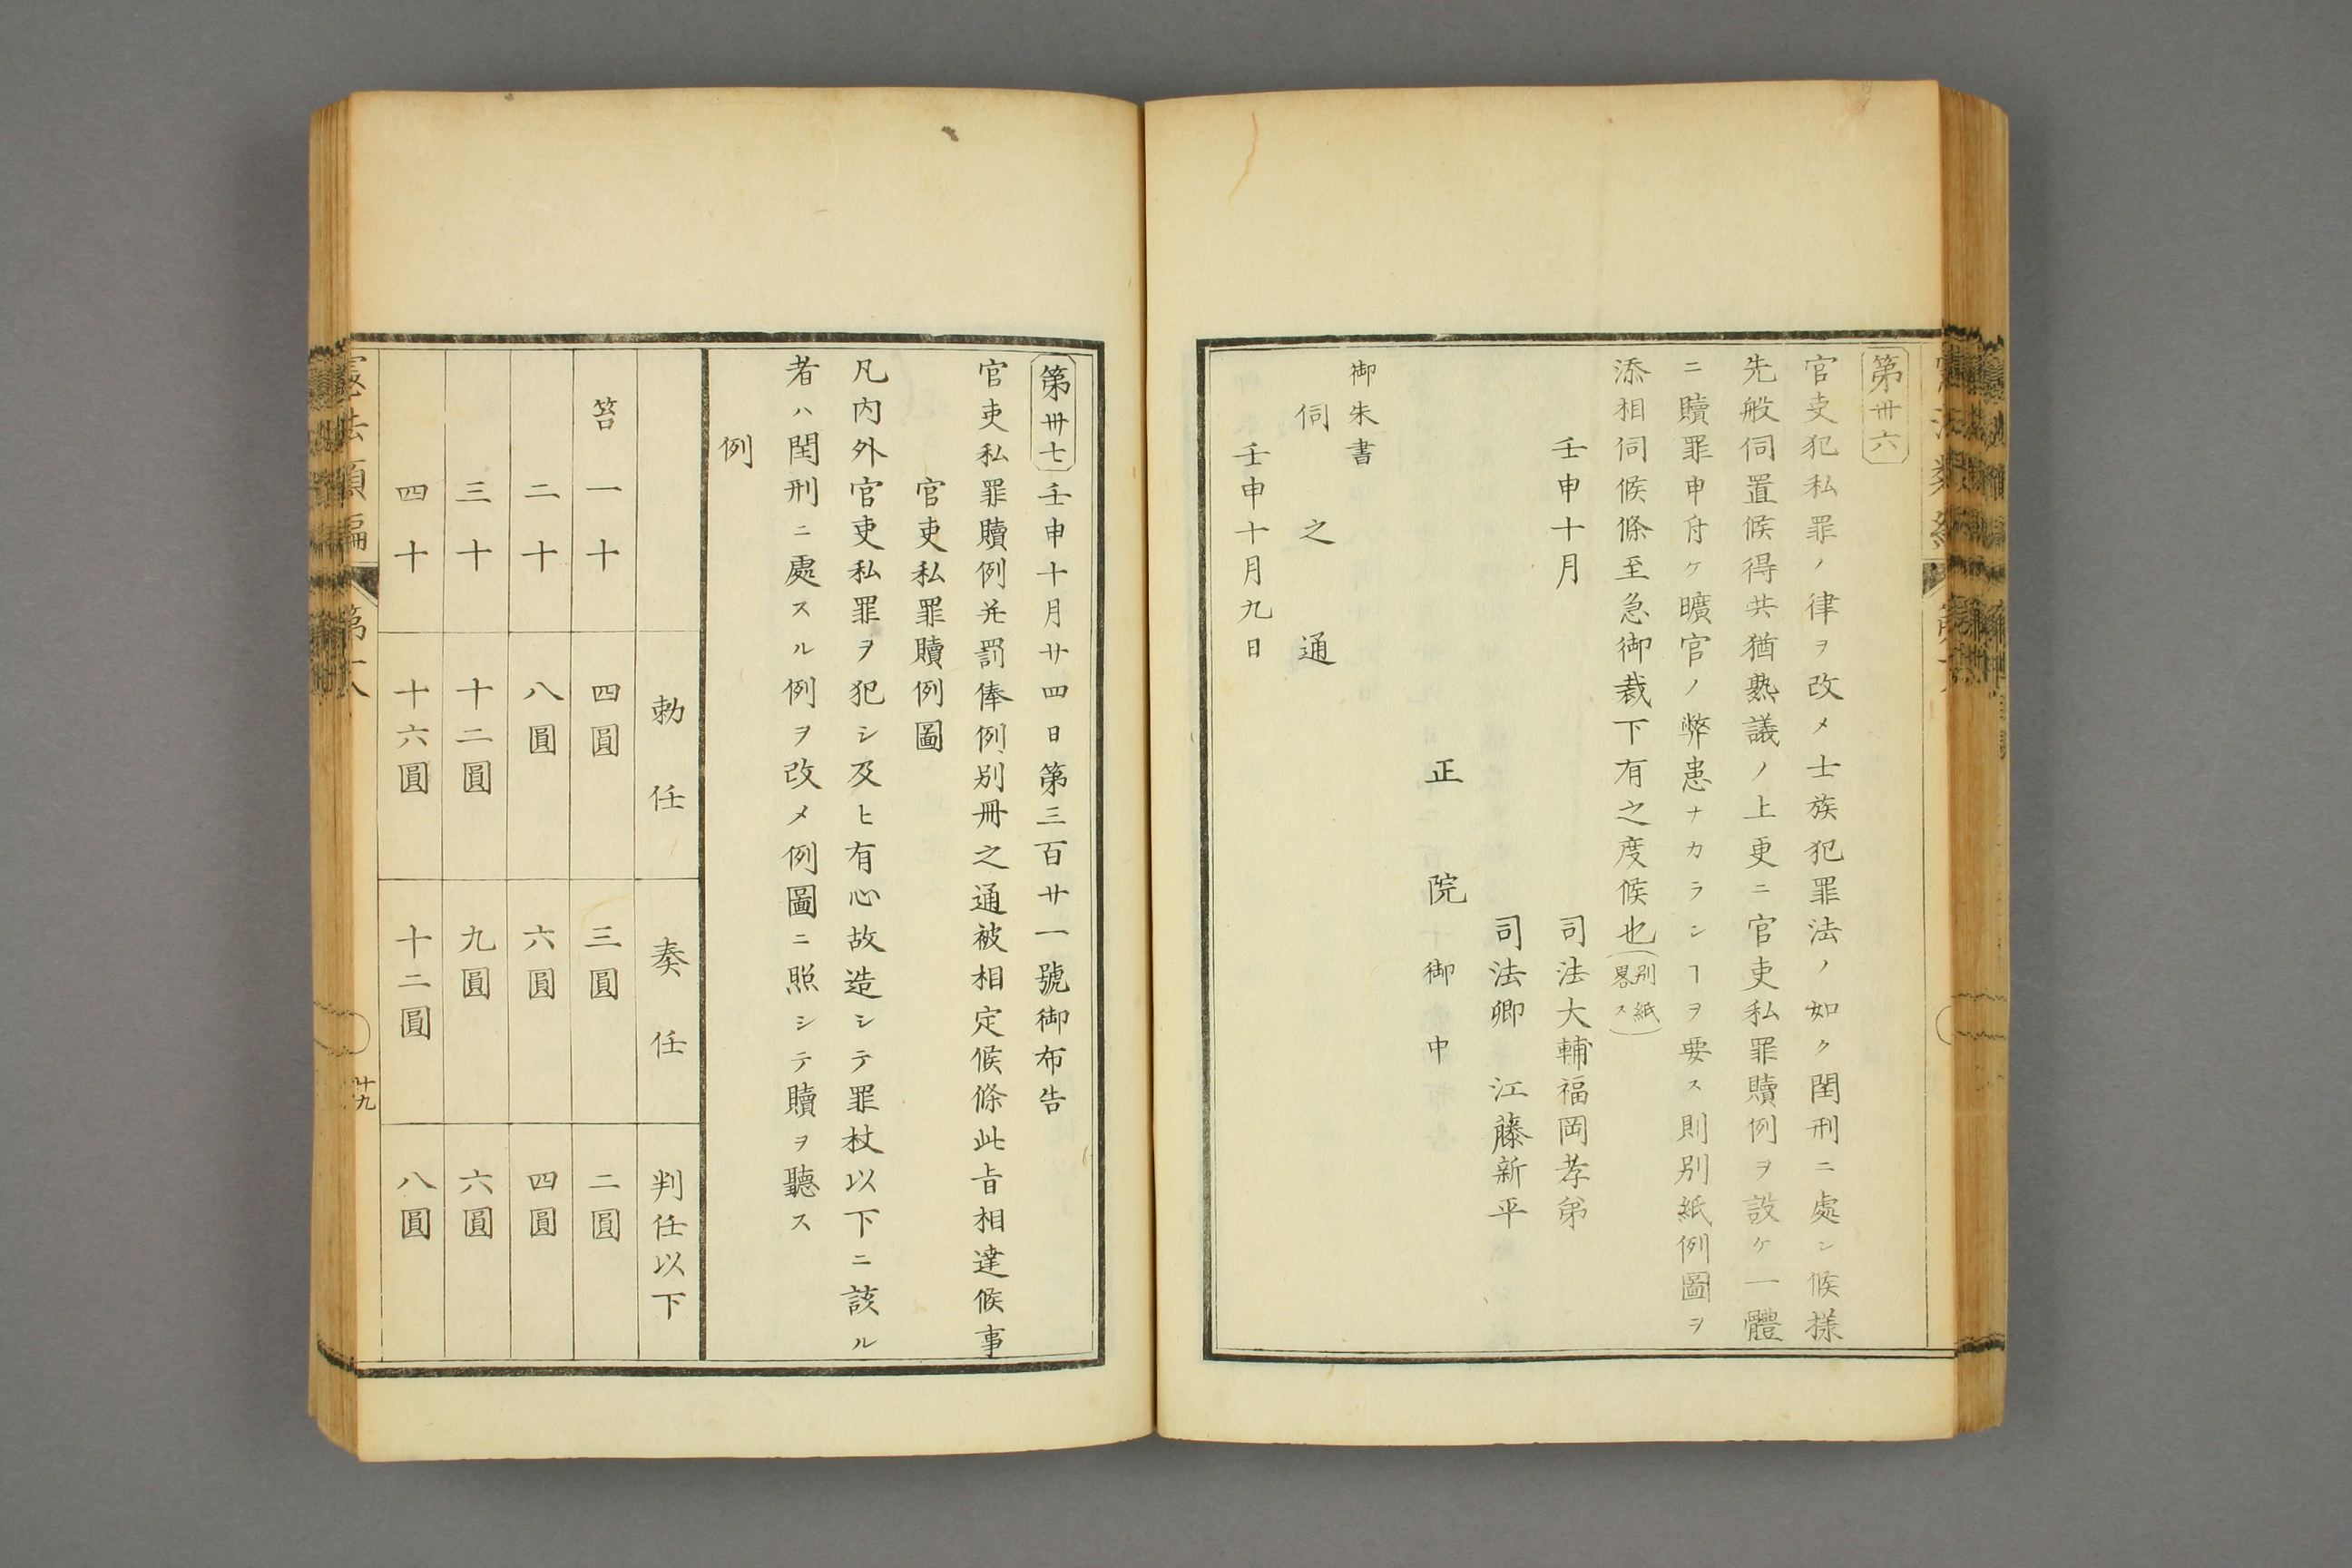 第卅六
官吏犯私罪ノ律ヲ改メ士族犯罪法ノ如ク閏刑ニ處シ候様
先般伺置候得共猶熟議ノ上更ニ官吏私罪贖例ヲ設ケ一體
ニ贖罪申付ケ曠官ノ弊患ナカラシヿヲ要ス則別紙例圖ヲ
添相伺候條至急御裁下有之度候也(別紙畧ス)
壬申十月 司法大輔福岡孝弟
司法卿 江藤新平
正院 御中
御朱書
伺之通
壬申十月九日
第卅七 壬申十月廿四日第三百廿一號御布告
官吏私罪贖例并罰俸例別冊之通被相定候條此旨相達候事
官吏私罪贖例圖
凡内外官吏私罪ヲ犯シ及ヒ有心故造シテ罪杖以下ニ該ル
者ハ閏刑ニ處スル例ヲ改メ例圖ニ照シテ贖ヲ聽ス
例
勅任 奏任 判任以下
笞 一十 四圓 三圓 二圓
二十 八圓 六圓 四圓
三十 十二圓 九圓 六圓
四十 十六圓 十二圓 八圓
憲法類編 第十八 廿九